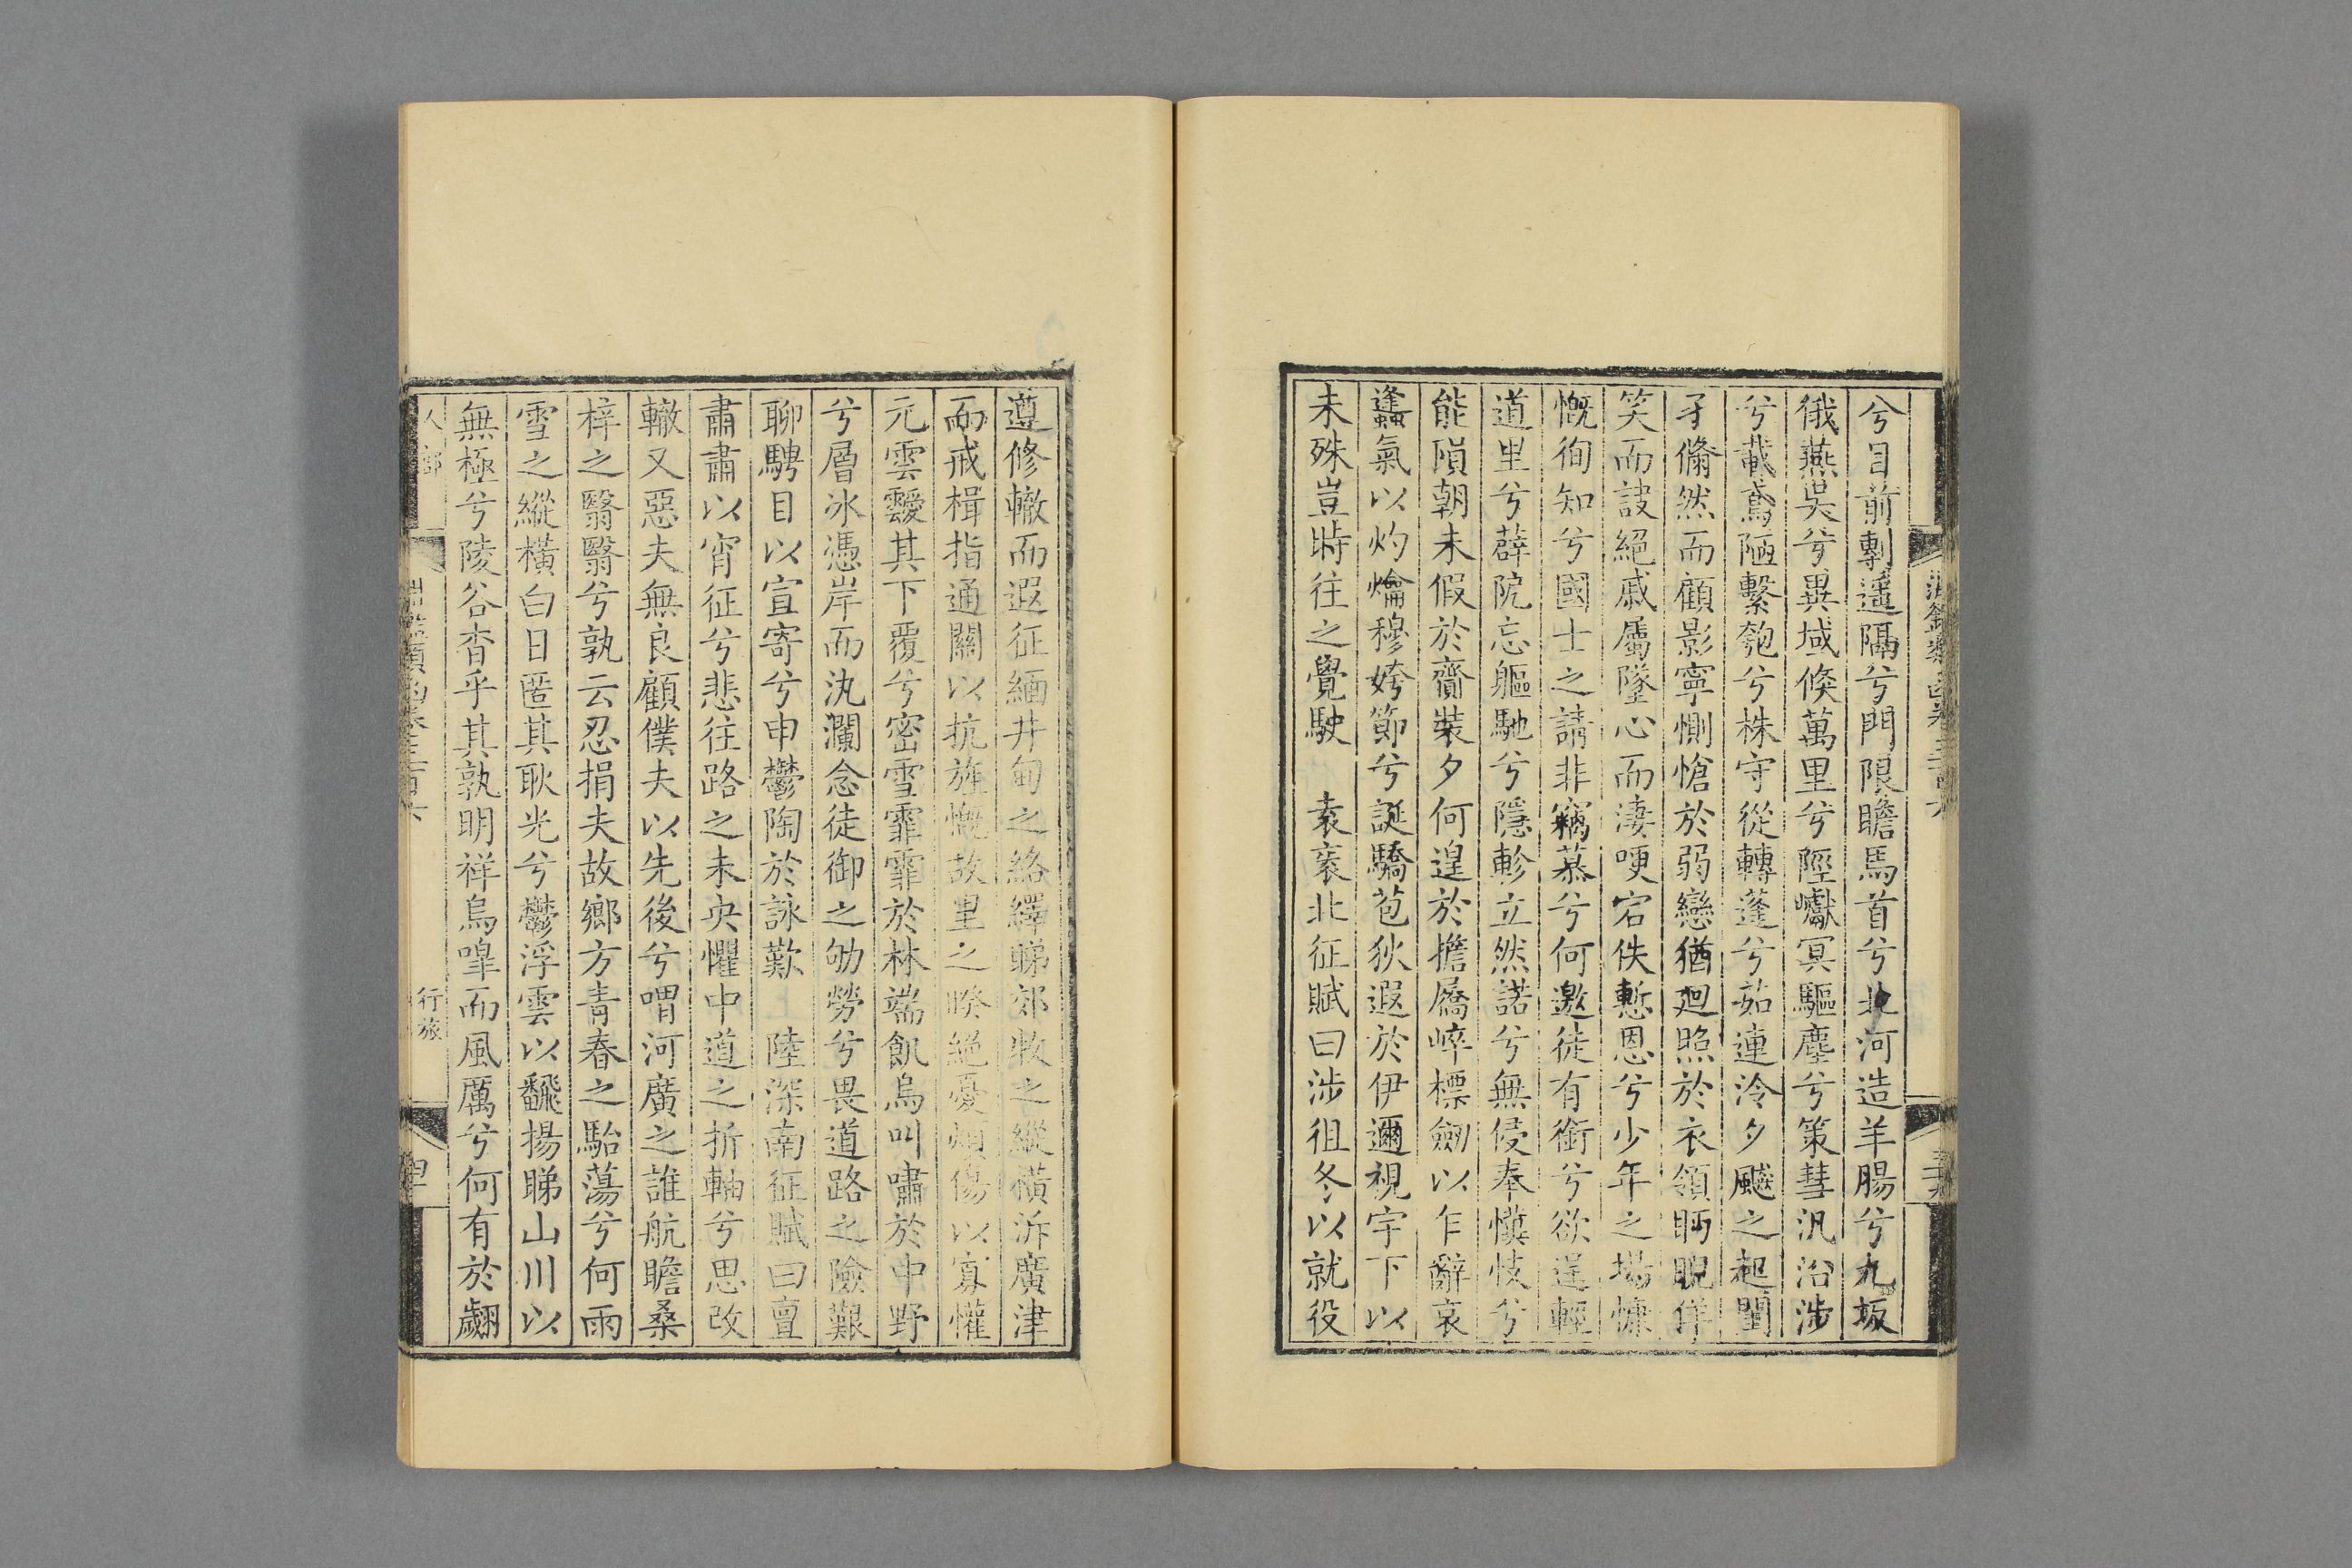 兮目前剸遥隔兮門限瞻馬首兮北河造羊腸兮九坂
俄燕吳兮異域倐萬里兮陘巘冥驅塵兮策彗汎沿涉
兮載鳶陋繫匏兮株守從轉蓬兮茹連泠夕飇之起闈
孑翛然而顧影寧惻愴於弱戀猶廻照於衣領眄睨佯
笑而詖絕戚屬墜心而淒哽宕佚慙恩兮少年之場慷
慨徇知兮國士之請非竊慕兮何邀徒有銜兮欲逞輕
道里兮薜阬忘軀馳兮隱軫立然諾兮無侵奉懻忮兮
能隕朝未假於齎裝夕何遑於擔屩崪標劒以乍辭哀
蠭氣以灼爚穆姱節兮誕驕苞狄遐於伊邇視宇下以
未殊豈時往之覺駛　袁袠北征賦曰涉徂冬以就役
遵修轍而遐征緬井甸之絡繹睇郊牧之縱橫泝廣津
而戒楫指通關以抗旌慨故里之暌絕憂煩傷以寡懽
元雲靉其下覆兮密雪霏霏於林端飢烏叫嘯於中野
兮層冰憑岸而氿瀾念徒御之劬勞兮畏道路之險艱
聊騁目以宣寄兮申鬱陶於詠歎　陸深南征賦曰亶
肅肅以宵征兮悲往路之未央懼中道之折軸兮思改
轍又惡夫無良顧僕夫以先後兮喟河廣之誰航瞻桑
梓之翳翳兮孰云忍捐夫故鄉方青春之駘蕩兮何雨
雪之縱橫白日匿其耿光兮鬱浮雲以飜揚睇山川以
無極兮陵谷杳乎其孰明祥烏嘷而風厲兮何有於翽
人部
行旅